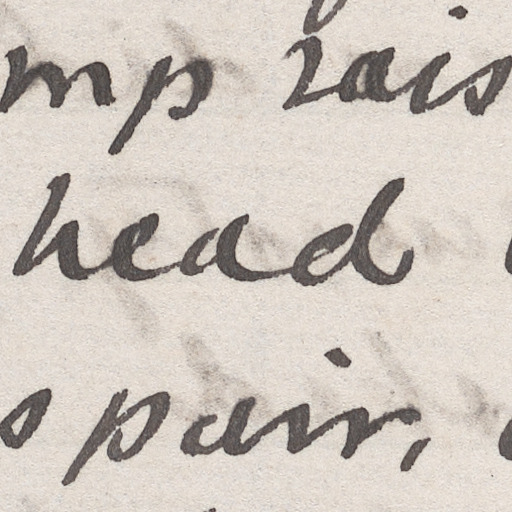 mp rais
head
s pair,